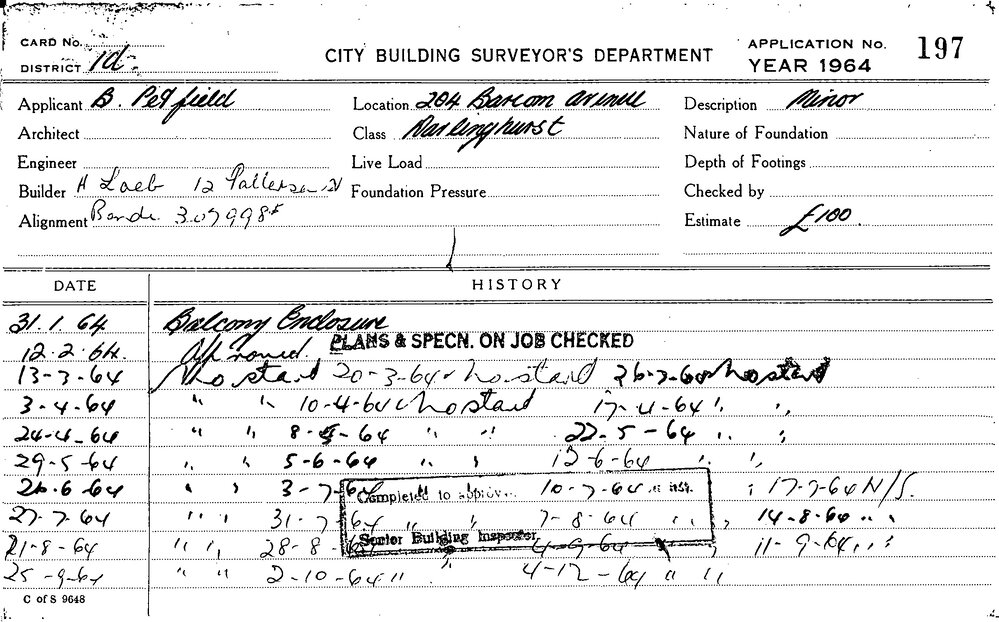 CARD No.
DISTRICT 1d.
CITY BUILDING SURVEYOR'S DEPARTMENT
APPLICATION No. 197
YEAR 1964
Applicant B. Petfield
Location 204 Barcom Avenue
Description Minor
Architect
Class Darlinghurst
Nature of Foundation
Engineer
Live Load
Depth of Footings
Builder H Loeb 12
Foundation Pressure
Checked by
Alignment
Estimate £100.
DATE
HISTORY
31.1.64 Balcony Enclosure
12.2.64. Approved. PLANS & SPECN. ON JOB CHECKED
13-3-64 No start 20-3-64 No start 26-3-64 No start
3-4-64 " " 10-4-64 No start 17-4-64 " "
24-4-64 " " 8-5-64 " " 22-5-64 " "
29-5-64 " " 5-6-64 " " 12-6-64 " "
26.6.64 " " 3-7-64 " " 10-7-64 " " 17-7-64 N/S.
Completed to approv.
27-7-64 " " 31-7-64 " " 7-8-64 " " 14-8-64 " "
Senior Building Inspector
21-8-64 " " 28-8-64 4-9-64 " 11-9-64 " "
25-9-64 " " 2-10-64 " " 4-12-64 " "
C of S 9648